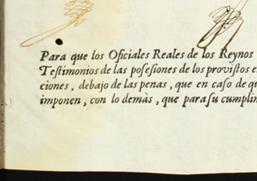 Para que los Oficiales Reales de los Reynos
Testimonios de las posesiones de los provistos e
ciones, debajo de las penas, que en caso de q
imponen, con lo demàs, que para su cumplim